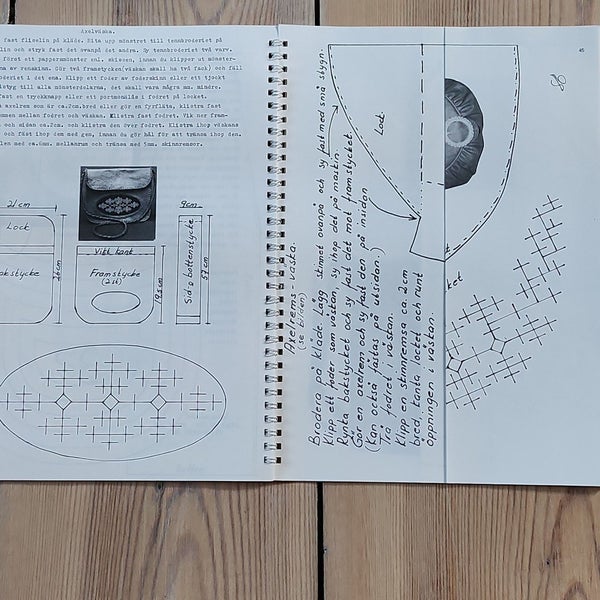 Axelväska.
fast fliselin på kläde. Rita upp mönstret till tennbroderiet på
lin och stryk fast det ovanpå det andra. Sy tennbroderiet två varv.
föret ett pappersmönster enl. skissen, innan du klipper ut mönster-
na av renskinn. Gör två framstycken(väskan ska ha två fack) och fäll
oderiet i det ena. Klipp ett foder av foderskinn eller ett tjockt
ietyg till alla mönsterdelarna, det skall vara några mm. mindre.
fast en tryckknapp eller ett portmonnälås i fodret på locket.
axelrem som är ca.2cm.bred eller gör en fyrfläta, klistra fast
emmen mellan fodret och väskan. Klistra fast fodret. Vik ner fram-
n och sidan ca.2cm. och klistra den över fodret. Klistra ihop väskans
och fäst ihop dem med gem, innan du gör hål för att tränsa ihop den.
len med ca.6mm. mellanrum och tränsa med 5mm. skinnremsor.
21 cm
Lock
26cm
Bakstycke
Vikt kant
Framstycke
(2 st)
19.5cm
9cm
Sid o bottenstycke
57cm
45
Lock
Axelrems-väska.
(se bilden)
Brodera på kläde. Lägg skinnet ovanpå och sy fast med små stygn.
Klipp ett foder som väskan, sy ihop det på maskin.
Rynka bakstycket och sy fast det mot framstycket.
Gör en axelrem och sy fast den på insidan
(Kan också fästas på utsidan.)
Trä fodret i väskan.
Klipp en skinnremsa ca. 2cm
bred, kanta locket och runt
öppningen i väskan.
ket